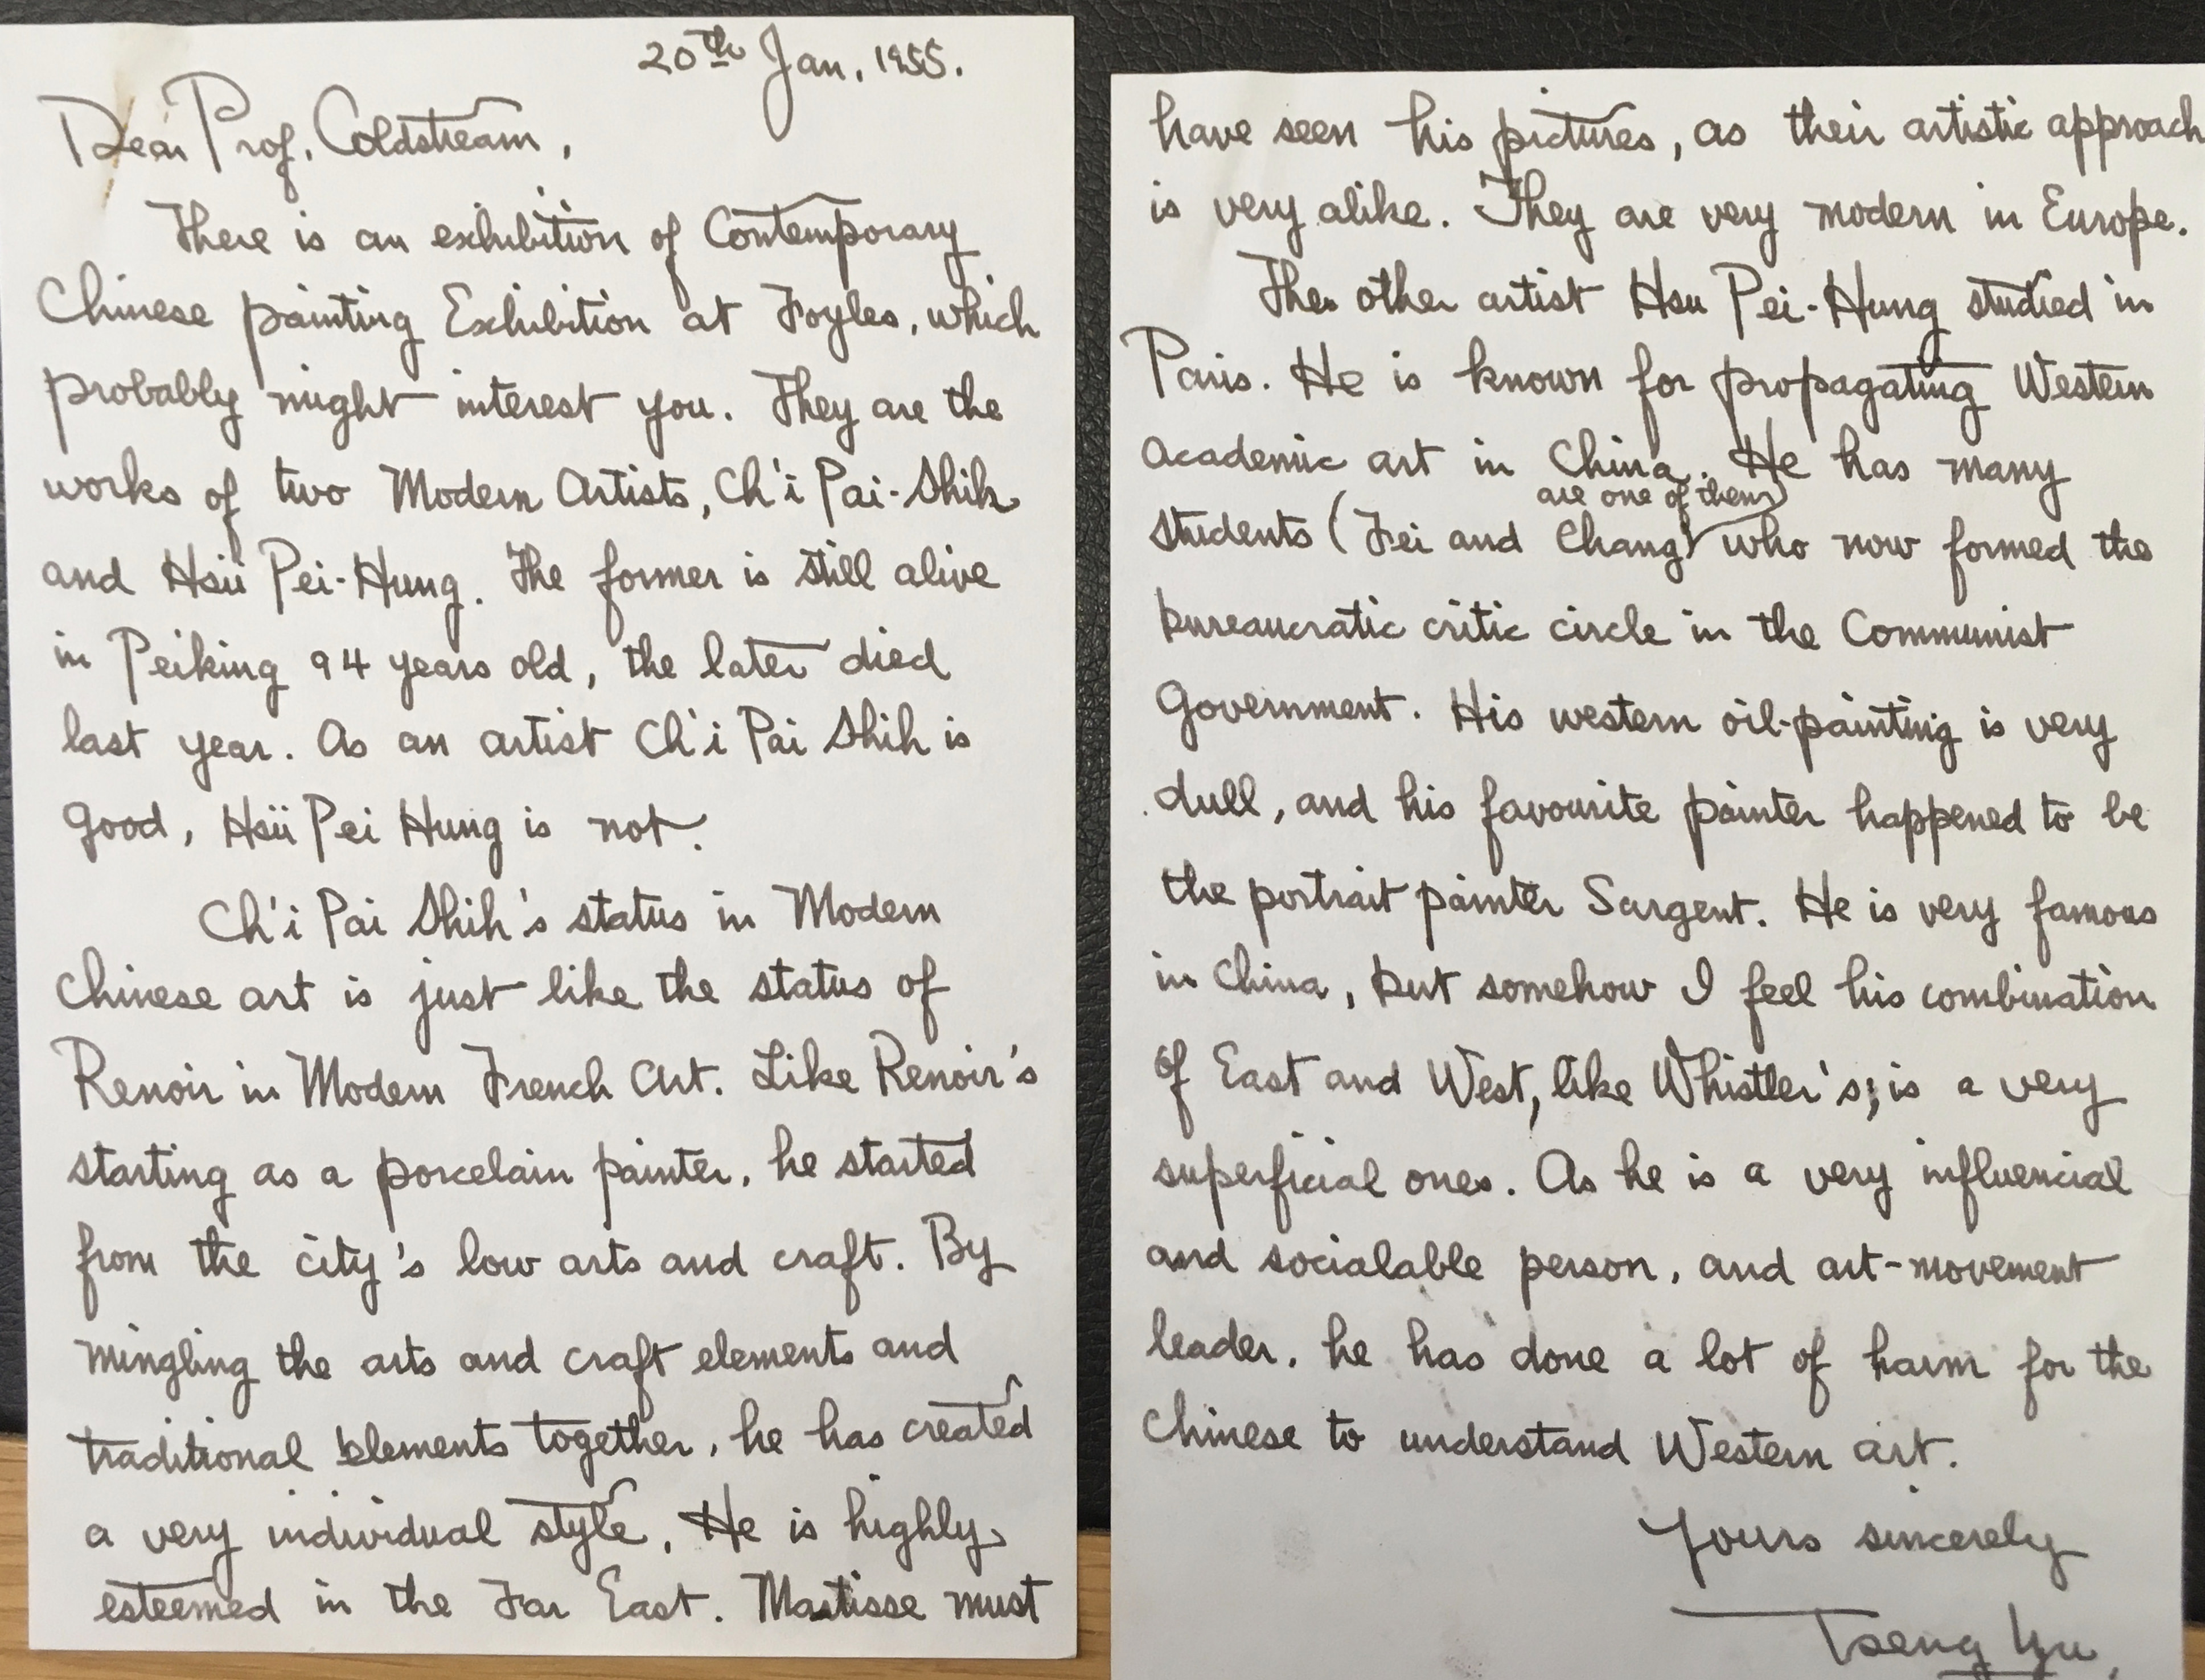 20th Jan, 1955.
Dear Prof. Coldstream,
There is an exhibition of Contemporary
Chinese painting Exhibition at Foyles, which
probably might interest you. They are the
works of two Modern Artists, Ch'i Pai-Shih
and Hsü Pei-Hung. The former is still alive
in Peiking 94 years old, the later died
last year. As an artist Ch'i Pai Shih is
good, Hsü Pei Hung is not.
Ch'i Pai Shih's status in Modern
Chinese art is just like the status of
Renoir in Modern French Art. Like Renoir's
starting as a porcelain painter, he started
from the city's low arts and craft. By
mingling the arts and craft elements and
traditional elements together, he has created
a very individual style. He is highly
esteemed in the Far East. Mastisse must
have seen his pictures, as their artistic approach
is very alike. They are very modern in Europe.
The other artist Hsu Pei-Hung studied in
Paris. He is known for propagating Western
academic art in China. He has many
are one of them)
students (Fei and Chang) who now formed the
bureaucratic critic circle in the Communist
Government. His western oil-painting is very
dull, and his favourite painter happened to be
the portrait painter Sargent. He is very famous
in China, but somehow I feel his combination
of East and West, like Whistler's, is a very
superficial ones. As he is a very influencial
and socialable person, and art-movement
leader, he has done a lot of harm for the
Chinese to understand Western art.
Yours sincerely
Tseng Yu.